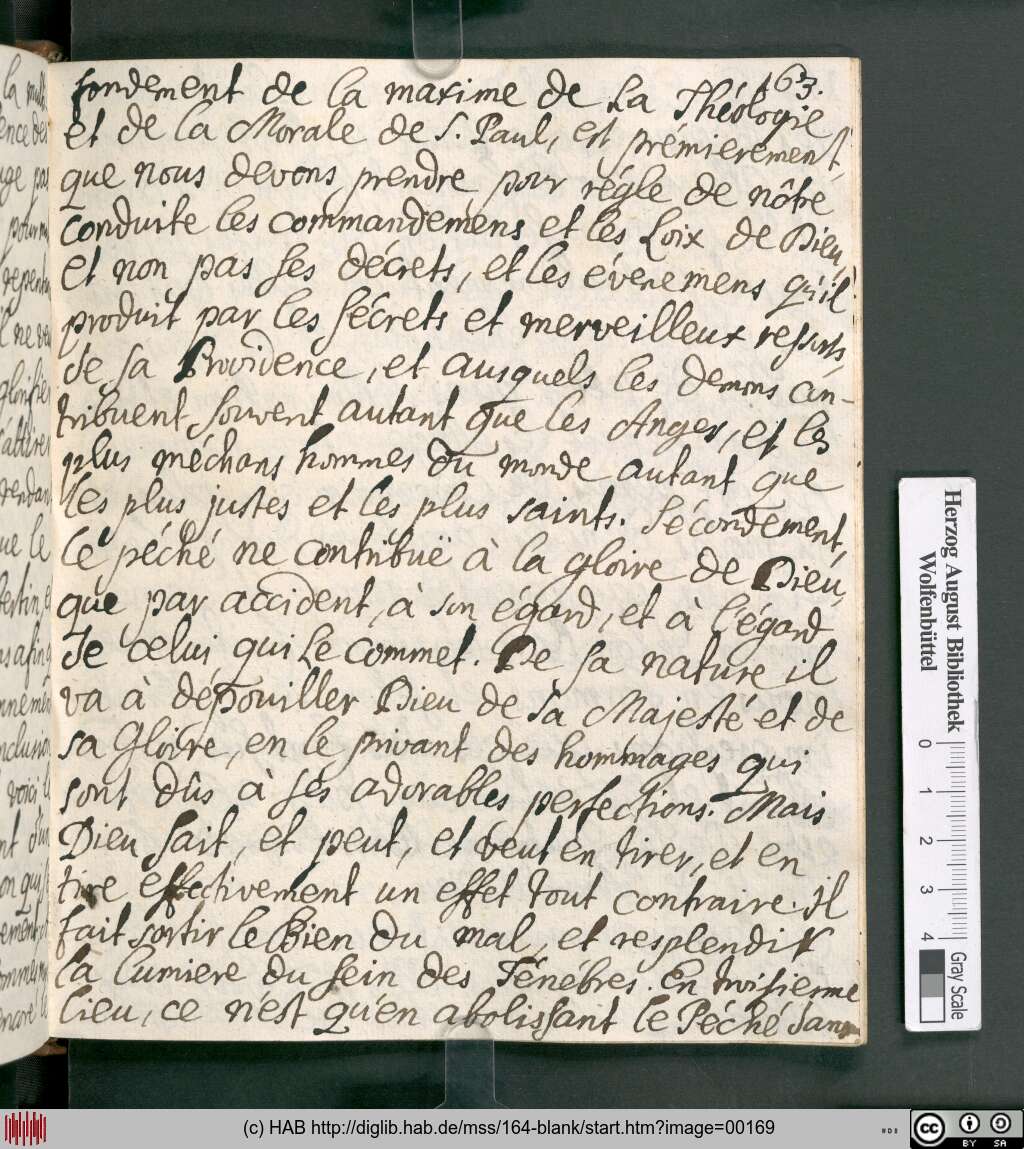 163.
fondement de la maxime de la Théologie
et de la Morale de S. Paul, est prémierement,
que nous devons prendre pour régle de nôtre
conduite les commandemens et les Loix de Dieu,
et non pas ses décrets, et les évenemens qu'il
produit par les sécrets et merveilleux ressorts
de sa Providence, et ausquels les demons con-
tribuent souvent autant que les Anges, et les
plus méchans hommes du monde autant que
les plus justes et les plus saints. Sécondement,
le péché ne contribuë à la gloire de Dieu,
que par accident, à son égard, et à l'égard
de celui qui le commet. De sa nature il
va à dépouiller Dieu de sa Majesté et de
sa Gloire, en le privant des hommages qui
sont dûs à ses adorables perfections. Mais
Dieu sait, et peut, et veut en tirer, et en
tire effectivement un effet tout contraire. Il
fait sortir le Bien du mal, et resplendir
la lumiere du sein des Ténébres. En troisieme
lieu, ce n'est qu'en abolissant le Péché dans
Herzog August Bibliothek
Wolfenbüttel
0 1 2 3 4
Gray Scale
(c) HAB http://diglib.hab.de/mss/164-blank/start.htm?image=00169
cc BY SA